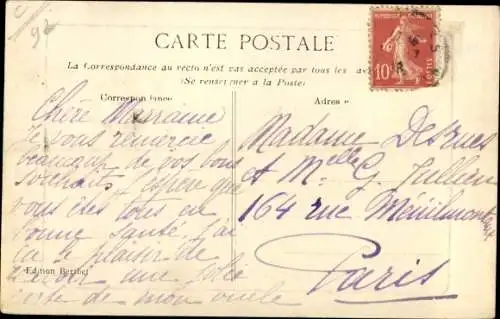 92
CARTE POSTALE
La Correspondance au recto n'est pas acceptée par tous les
(Se renseigner à la Poste)
Correspondance
Adresse
10
POSTES
Chère Marraine
Je vous remercie
beaucoup de vos bons
souhaits, j'espère que
vous êtes tous en
bonne santé, j'ai
eu le plaisir de
une jolie
carte de mon oncle
Madame Desrues
et Melle G. Jullien
164 rue Ménilmontant
Paris
Edition Berthet